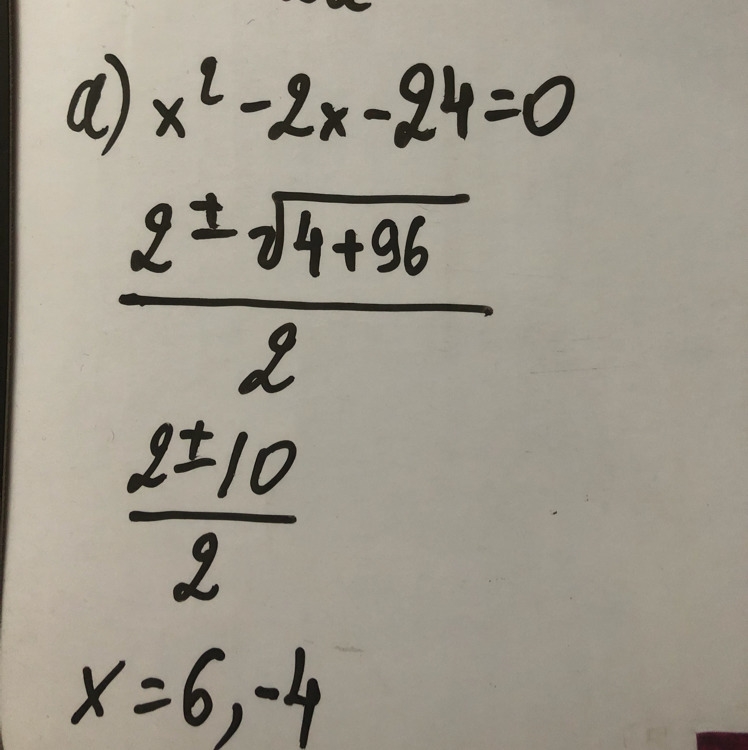 a) x² -2x -24=0
2 ± √4+96
2
2 ± 10
2
x = 6, -4